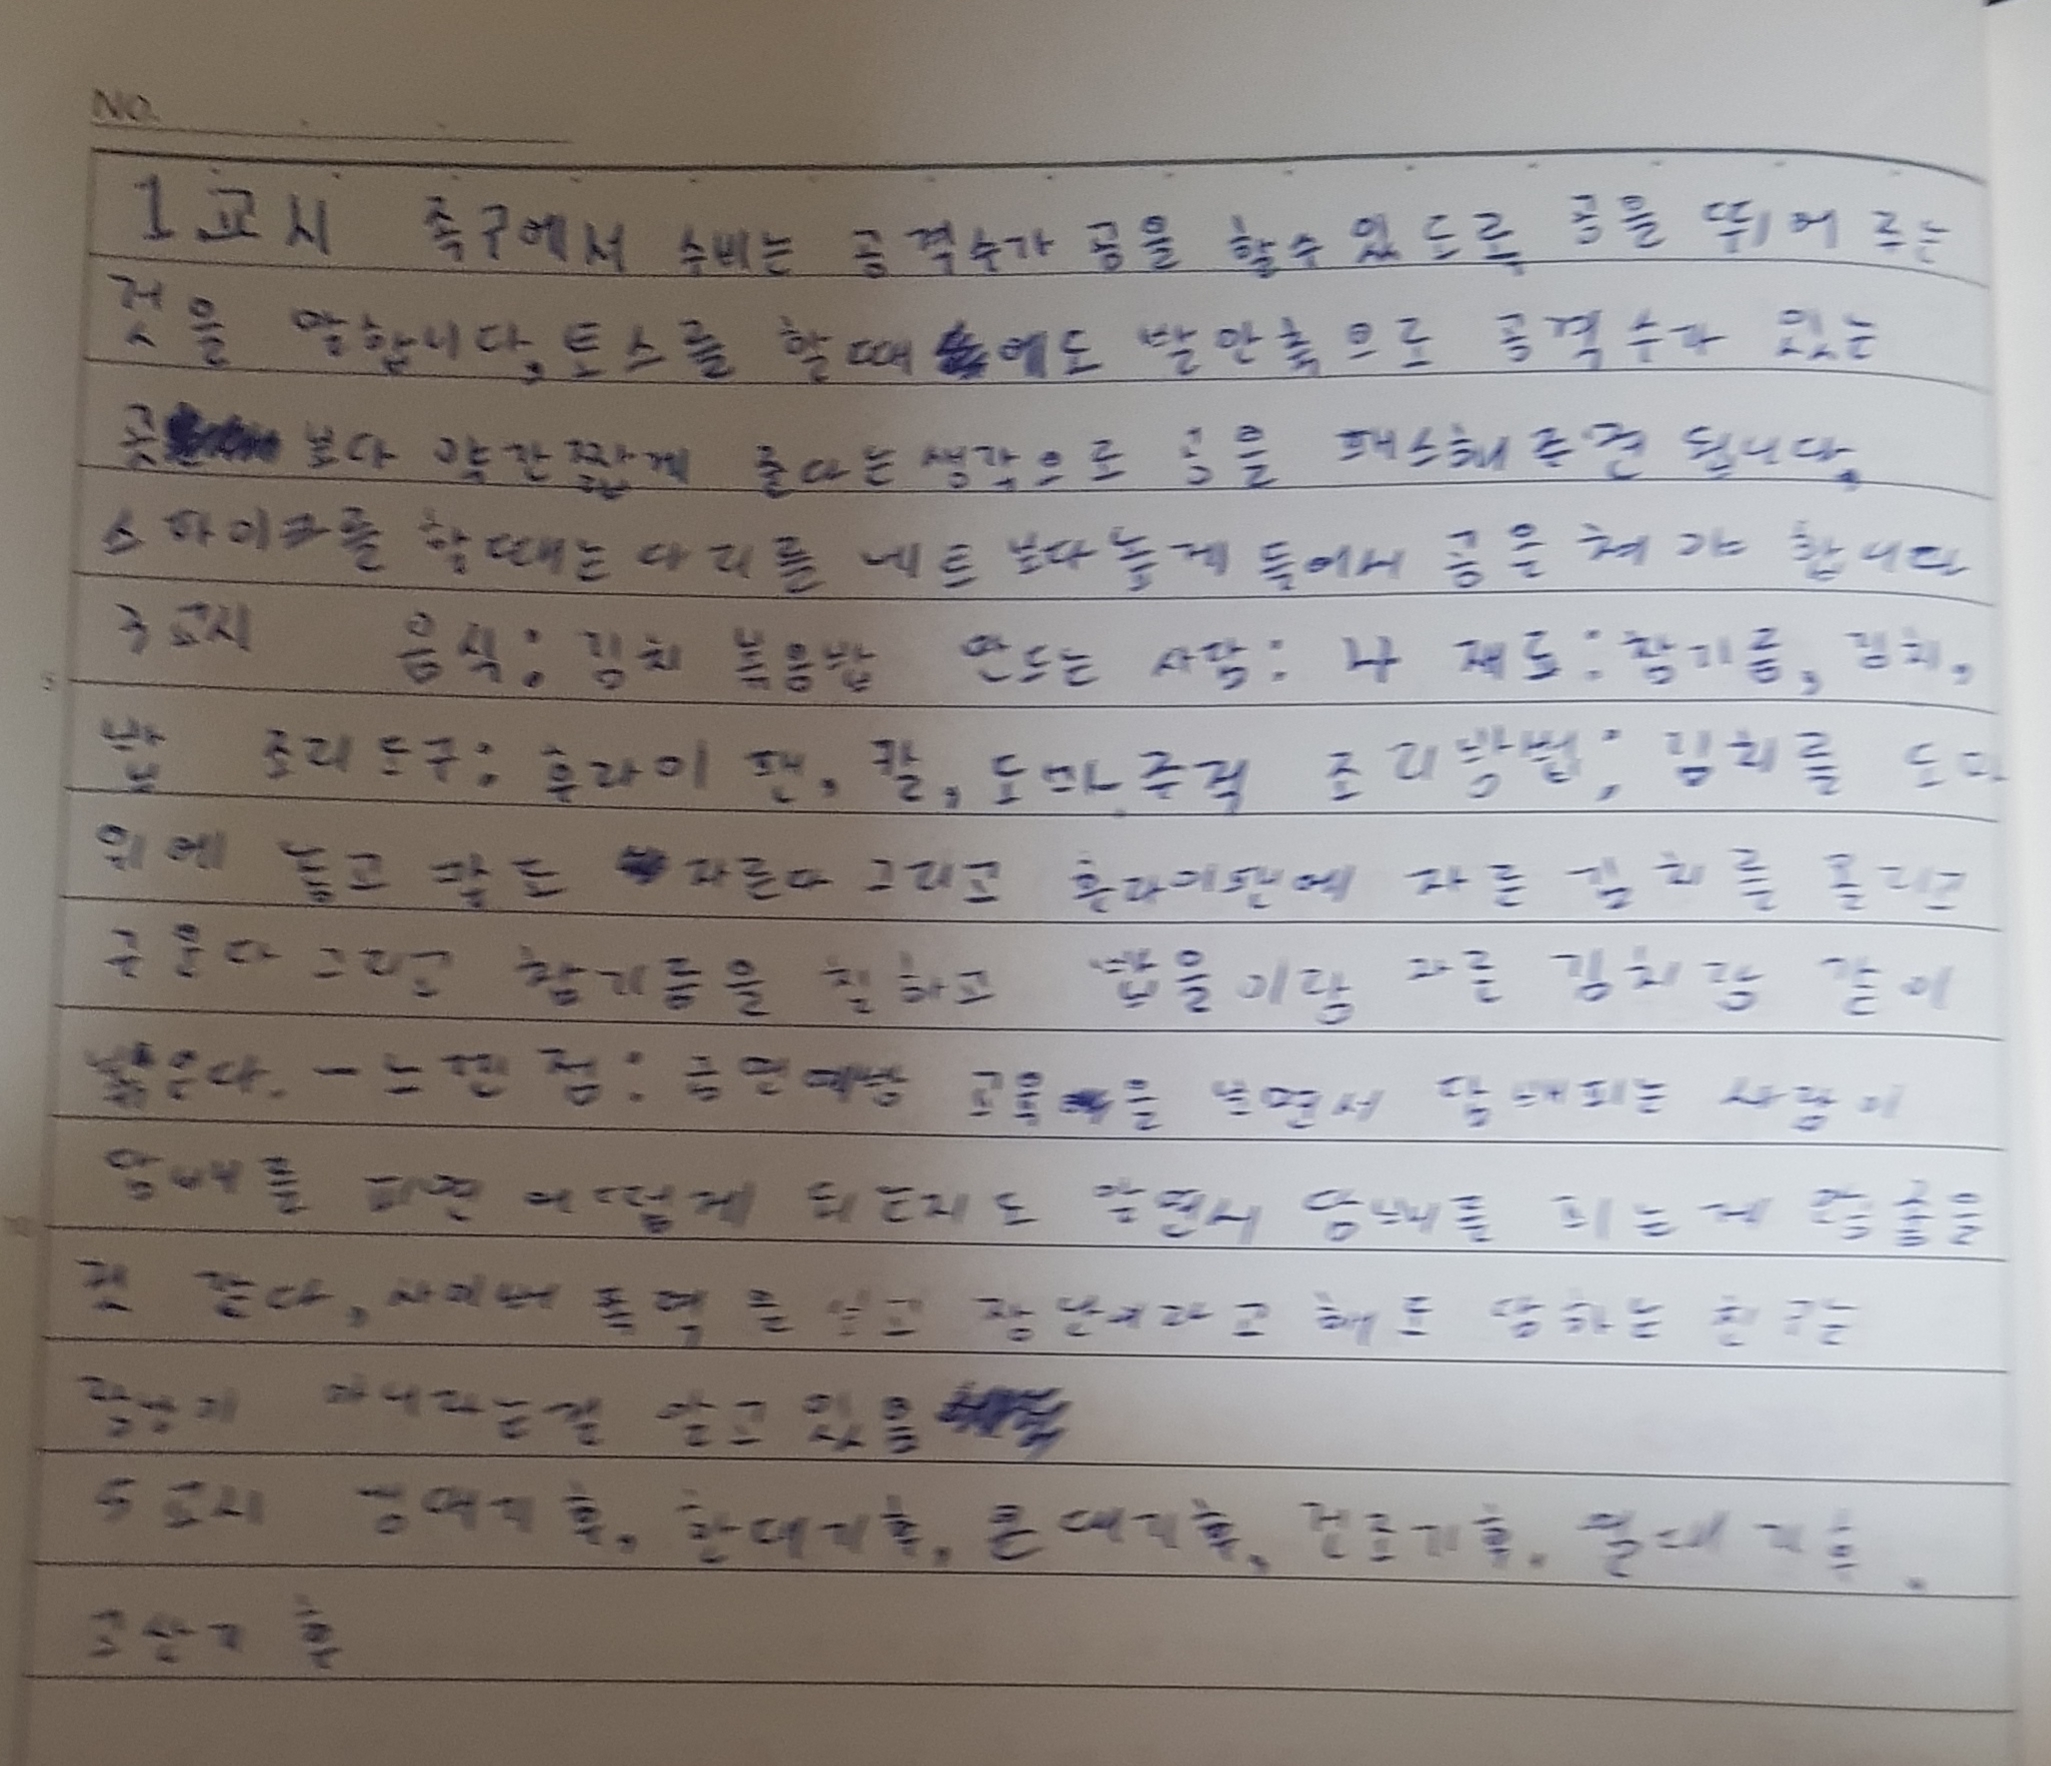 NO.
1교시 족구에서 수비는 공격수가 공을 할수 있도록 공을 뛰어 주는
것을 말합니다. 토스를 할때에도 발안축으로 공격수가 있는
곳보다 약간짧게 준다는생각으로 공을 패스해주면 됩니다.
스파이크를 할때는 다리를 네트 보다높게 들어서 공을 쳐야 합니다
3교시 음식: 김치 볶음밥 만드는 사람: 나 재료: 참기름, 김치.
밥 조리도구: 후라이 팬. 칼, 도마, 주걱 조리방법: 김치를 도마
위에 놓고 칼로 자른다 그리고 후라이팬에 자른 김치를 올리고
구운다 그리고 참기름을 칠하고 밥을이랑 자른 김치랑 같이
볶은다. - 느낀 점: 흡연예방 교육을 보면서 담배피는 사람이
담배를 피면 어떻게 되는지도 알면서 담배를 피는게 잘못된
것 같다, 사이버 폭력을 하고 장난이라고 해도 당하는 친구는
장난이 아니라는걸 알고 있음
5교시 냉대기후. 한대기후. 온대기후. 건조기후. 열대기후.
고산기후